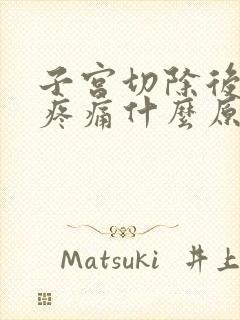 子宮切除後
疼痛什麼原
Matsuki 井上